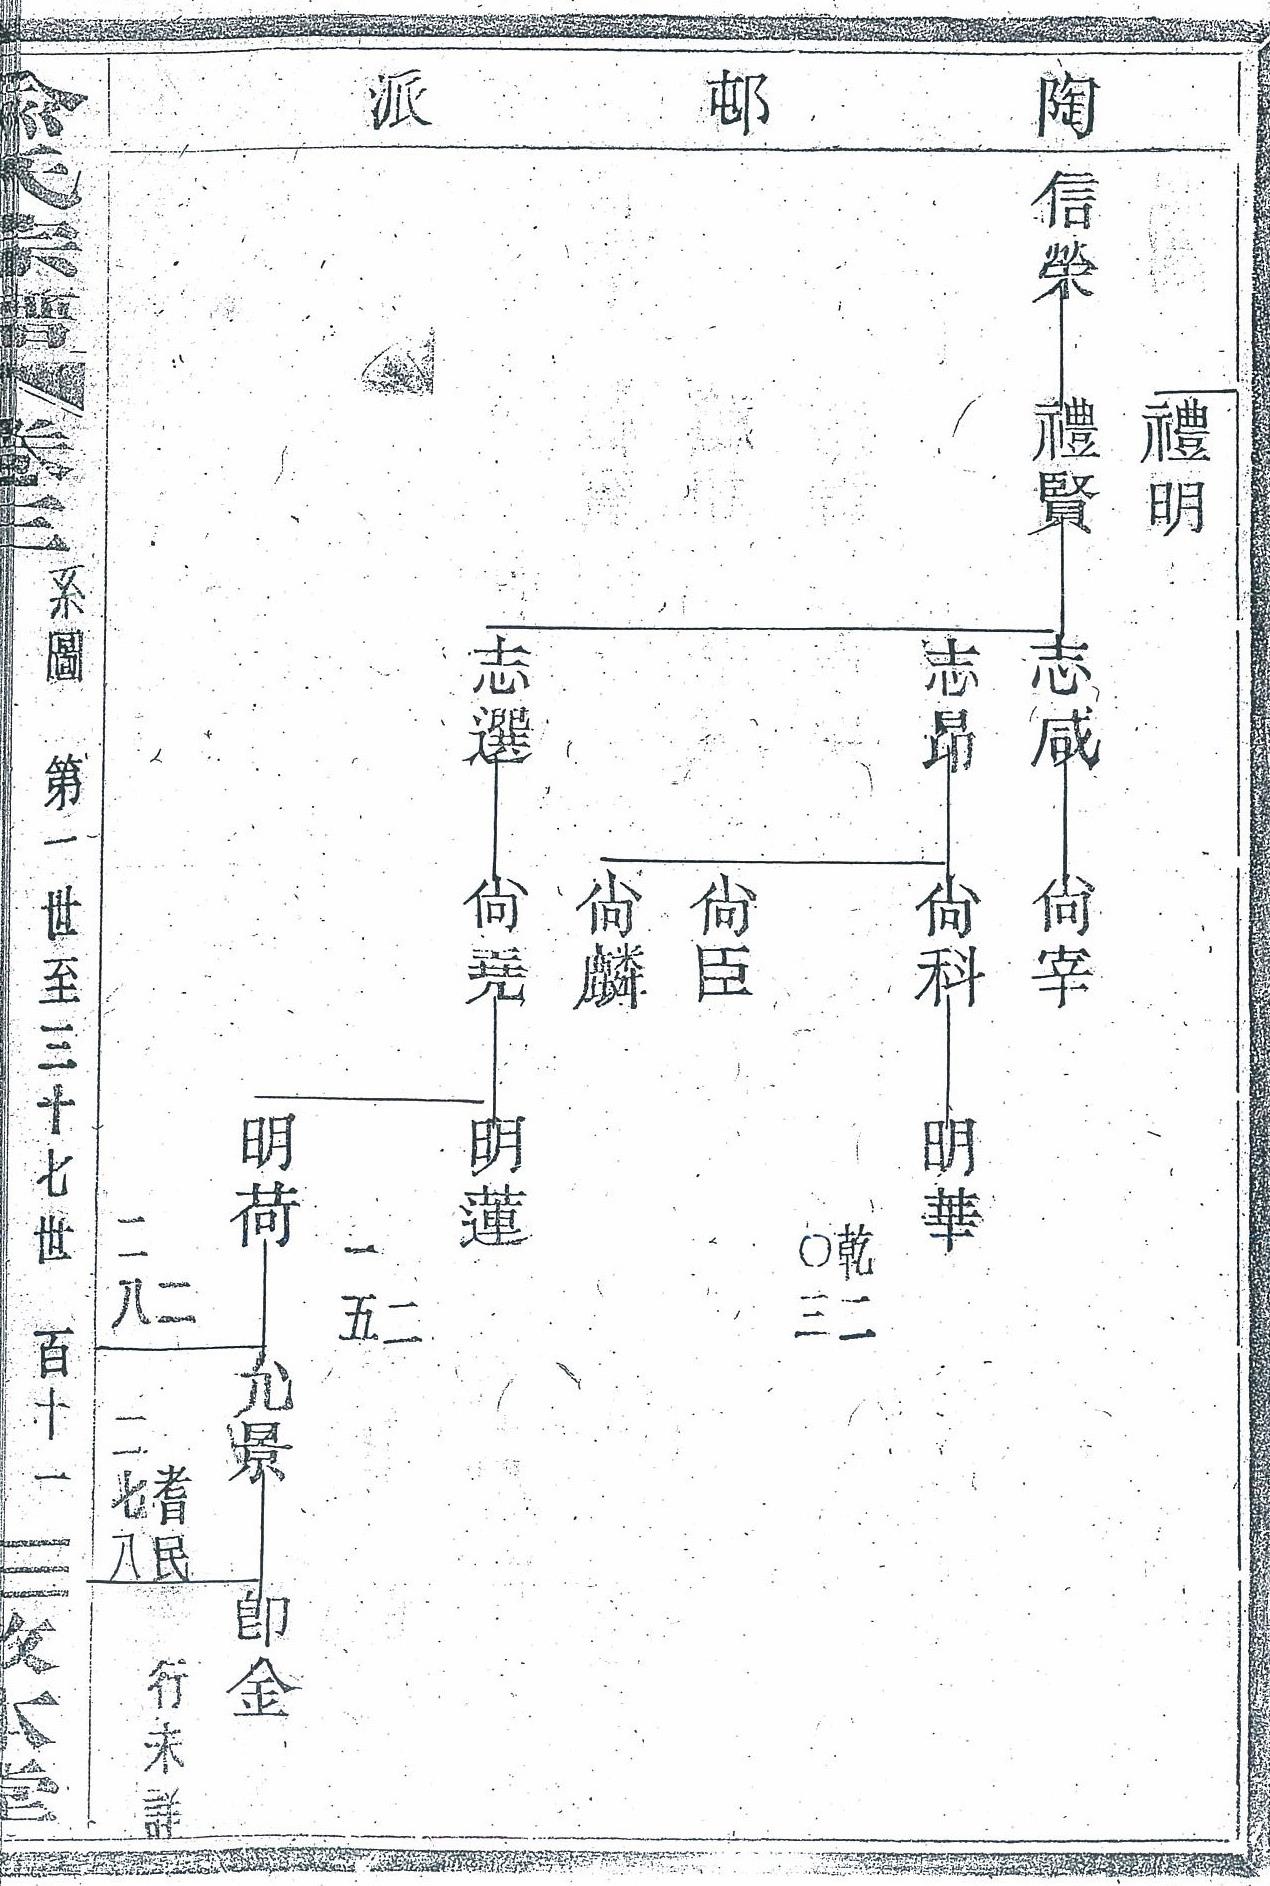 陶邨派
禮明
信榮
禮賢
志咸
尙宰
志昂
尙科
明華
乾二
〇三
尙臣
尙麟
志選
尙堯
明蓮
二
一五
明荷
允景
卽金
二
二八
耆民
二七八
行未詳
氏宗譜
卷三
系圖 第一世至三十七世 百十一